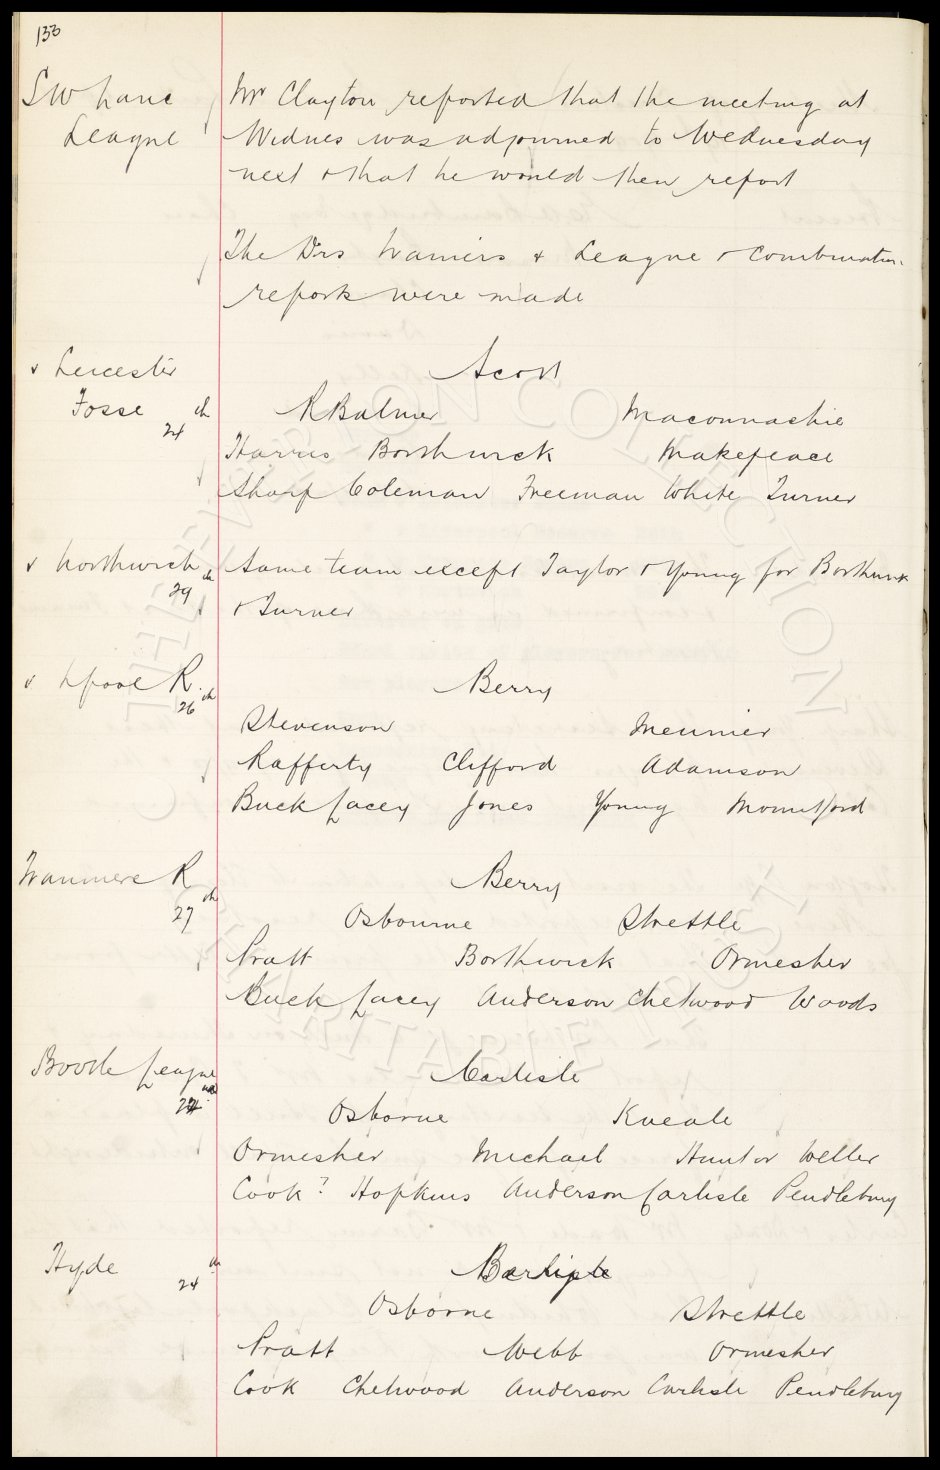 133
S W Lanc
League
Mr Clayton reported that the meeting at
Widnes was adjourned to Wednesday
next & that he would then report
The Drs Trainers & League & Combination
reports were made
v Leicester
Fosse 24th
Scott
R Balmer Maconnachie
Harris Borthwick Makepeace
Sharp Coleman Freeman White Turner
v Northwich
29th
Same team except Taylor & Young for Borthwick
& Turner
v Lpool R.
26th
Berry
Stevenson Meunier
Rafferty Clifford Adamson
Buck Lacey Jones Young Mountford
Tranmere R
27th
Berry
Osbourne Strettle
Pratt Borthwick Ormesher
Buck Lacey Anderson Chetwood Woods
Bootle League
Carlisle
Osborne Kneale
Ormesher Michael Hunter Weller
Cook? Hopkins Anderson Carlisle Pendlebury
Hyde 24th
Osborne Strettle
Pratt Webb Ormesher
Cook Chetwood Anderson Carlisle Pendlebury
THE EVERTON COLLECTION
CHARITABLE TRUST